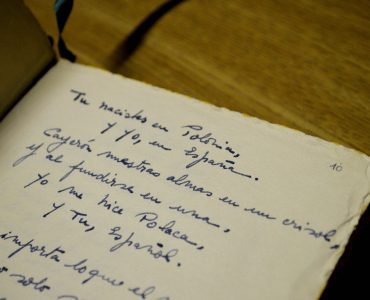 Tu nacistes en Polonia,
y yo, en España.
10
Cayerón nuestras almas en un crisol,
y al fundirse en una,
Yo me hice Polaca,
Y Tu, Español.
importa lo que el
solo